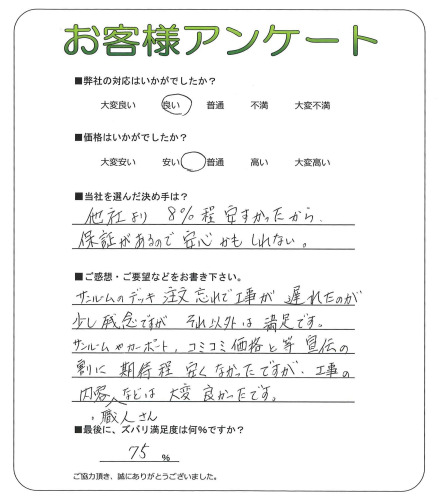 お客様アンケート
■弊社の対応はいかがでしたか？
大変良い　良い　普通　不満　大変不満
■価格はいかがでしたか？
大変安い　安い　普通　高い　大変高い
■当社を選んだ決め手は？
他社より 8%程 安すかったから.
保証があるので 安心かもしれない。
■ご感想・ご要望などをお書き下さい。
サンルームのデッキ 注文 忘れで工事が 遅れたのが
少し残念ですが それ以外は 満足です。
サンルームやカーポート, コミコミ価格と 宣伝の
割に 期待程 安くなかったですが、工事の
内容 などは 大変 良かったです。
、職人さん
■最後に、ズバリ満足度は何％ですか？
75 ％
ご協力頂き、誠にありがとうございました。